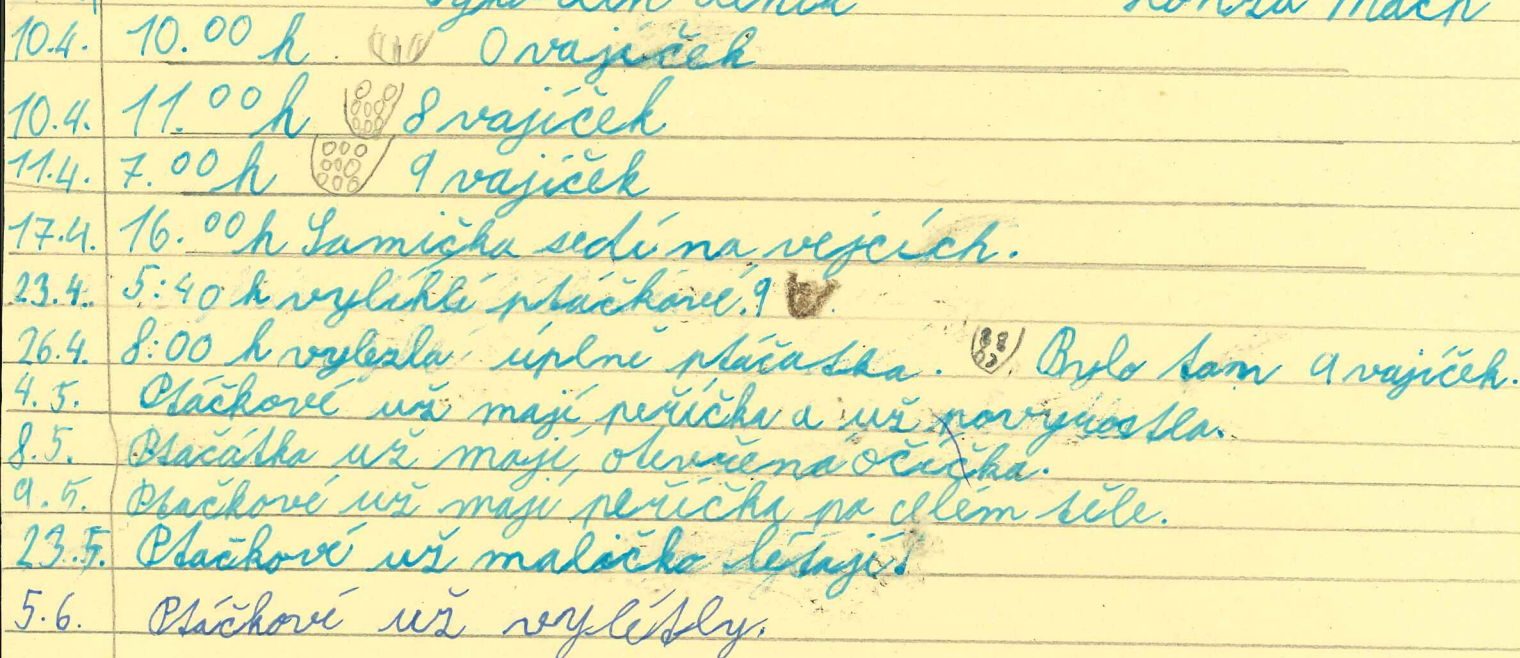 Honza Mach
10.4. 10.00 h 0 vajíček
10.4. 11.00 h 8 vajíček
11.4. 7.00 h 9 vajíček
17.4. 16.00 h Samička sedí na vejcích.
23.4. 5:40 h vylíhlí ptáčkové. 9
26.4. 8:00 h vylezla úplně ptáčatka. Bylo tam 9 vajíček.
4.5. Ptáčkové už mají peříčka a už povyrostla.
8.5. Ptačátka už mají otevřena očička.
9.5. Ptačkové už mají peříčka po celém těle.
23.5. Ptačkové už maličko létají!
5.6. Ptáčkové už vylétly.